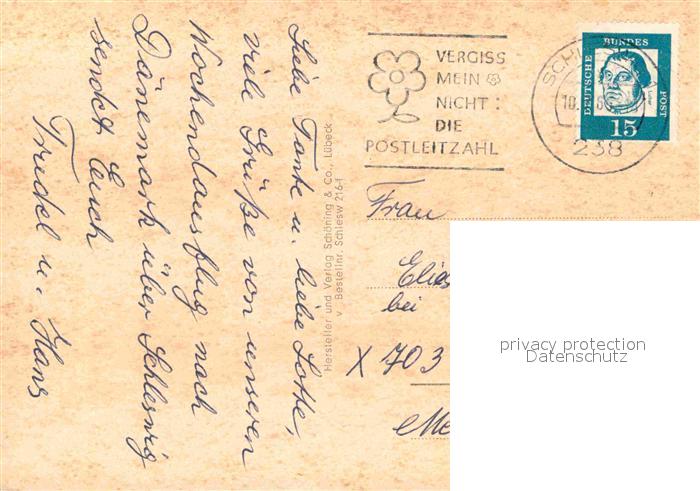 Liebe Tante u. liebe Lotte,
viele Grüße von unseren
Wochendausflug nach
Dänemark über Schleswig
sendet Euch
Trudel u. Hans
Hersteller und Verlag Schöning & Co., Lübeck
Bestellnr. Schlesw 216-f
VERGISS
MEIN
NICHT:
DIE
POSTLEITZAHL
SCH
10.
238
DEUTSCHE
BUNDES
POST
15
Frau
Elies
bei
X 703
privacy protection
Datenschutz